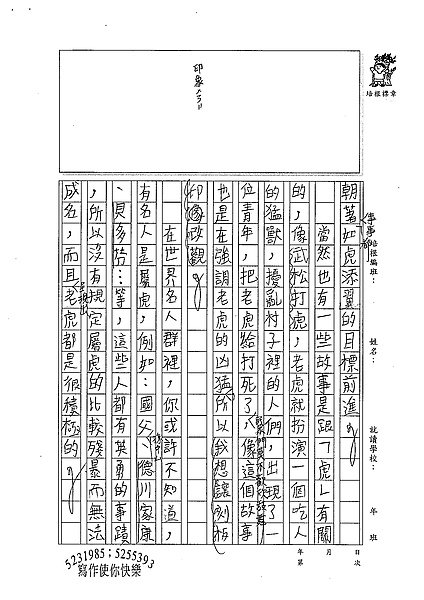 培根標章
印象
培根編班： 姓名： 就讀學校： 年 班
年 月 日
第 次
朝著如虎添翼的目標前進。
當然也有一些故事是跟「虎」有關
的，像武松打虎，老虎就扮演一個吃人
的猛獸，擾亂村子裡的人們，出現了一
位青年，把老虎給打死了，像這個故事
也是在強調老虎的凶猛，所以我想讓刻板
印象改觀。
在世界名人群裡，你或許不知道，
有名人是屬虎，例如：國父、德川家康
、貝多芬…等，這些人都有英勇的事蹟
，所以沒有規定屬虎的比較殘暴而無法
成名，而且老虎都是很積極的。
5231985；5255393
寫作使你快樂